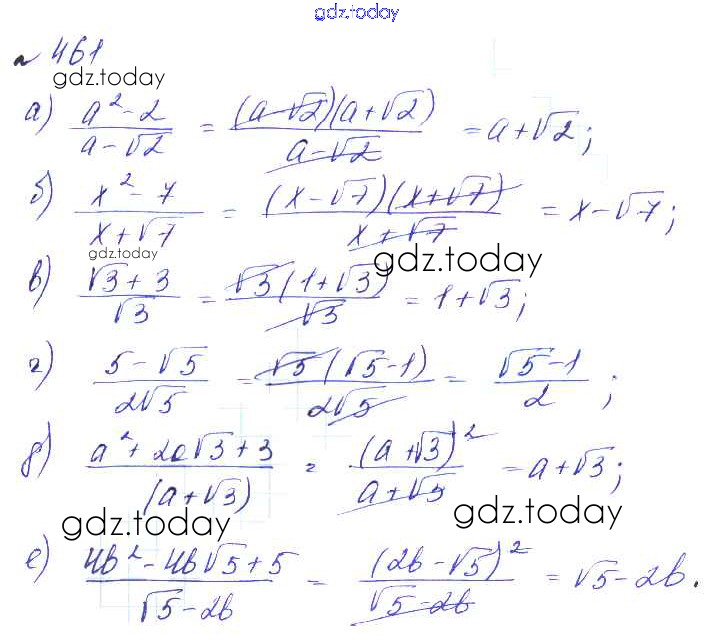 gdz.today
№ 461
gdz.today
а) (a² - 2)/(a - √2) = ((a - √2)(a + √2))/(a - √2) = a + √2;
б) (x² - 7)/(x + √7) = ((x - √7)(x + √7))/(x + √7) = x - √7;
gdz.today
gdz.today
в) (√3 + 3)/√3 = (√3(1 + √3))/√3 = 1 + √3;
г) (5 - √5)/(2√5) = (√5(√5 - 1))/(2√5) = (√5 - 1)/2;
д) (a² + 2a√3 + 3)/(a + √3) = (a + √3)²/(a + √3) = a + √3;
gdz.today
gdz.today
е) (4b² - 4b√5 + 5)/(√5 - 2b) = (2b - √5)²/(√5 - 2b) = √5 - 2b.